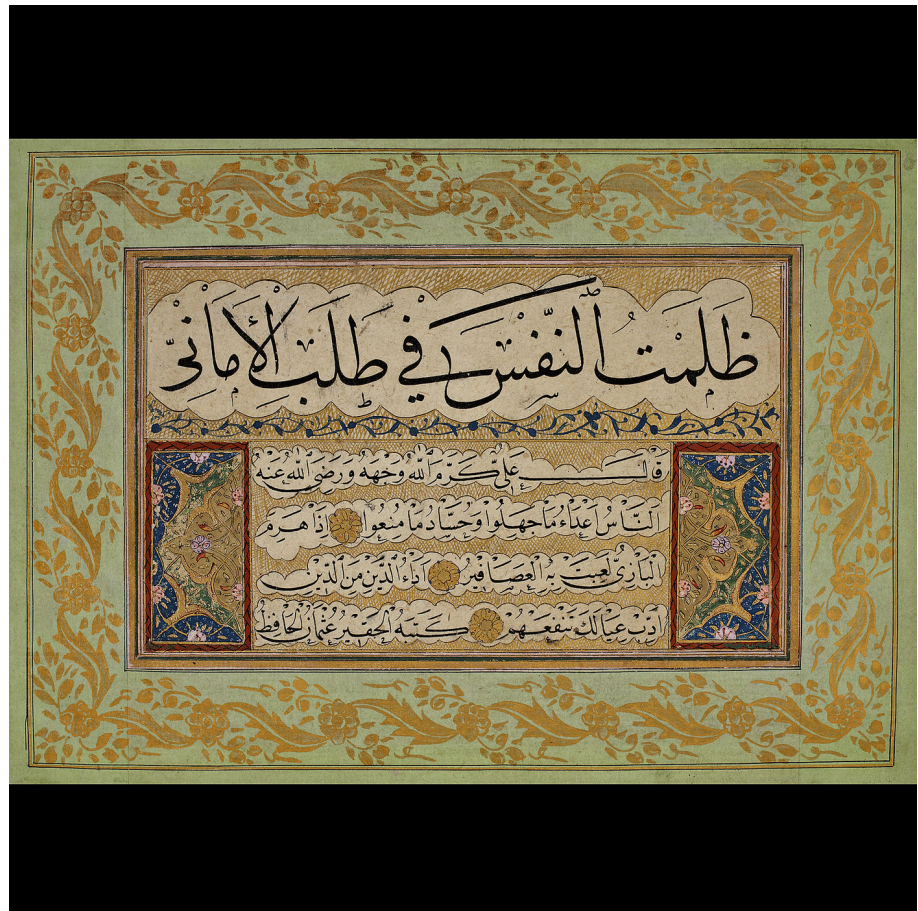 ظَلَمْتُ النَّفْسَ فِي طَلَبِ الْأَمَانِيّ
قَالَ عَلِيٌّ كَرَّمَ اللهُ وَجْهَهُ وَرَضِيَ اللهُ عَنْهُ
اَلنَّاسُ أَعْدَاءُ مَا جَهِلُوا وَحُسَّادُ مَا مُنِعُوا إِذَا هَرِمَ
الْبَازِيُّ لَعِبَتْ بِهِ الْعَصَافِيرُ أَدَاءُ الدَّيْنِ مِنَ الدِّينِ
أَدِّبْ عِيَالَكَ تَنْفَعْهُمْ كَتَبَهُ الْحَقِيرُ عُثْمَانُ الْحَافِظُ